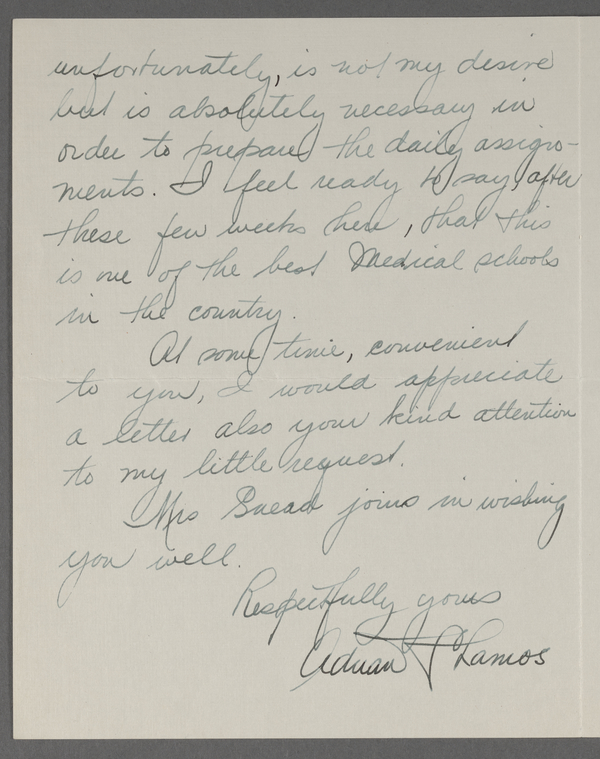 unfortunately, is not my desire
but is absolutely necessary in
order to prepare the daily assign-
ments. I feel ready to say, after
these few weeks here, that this
is one of the best Medical schools
in the country.
At some time, convenient
to you, I would appreciate
a letter also your kind attention
to my little request.
Mrs Snead joins in wishing
you well.
Respectfully yours